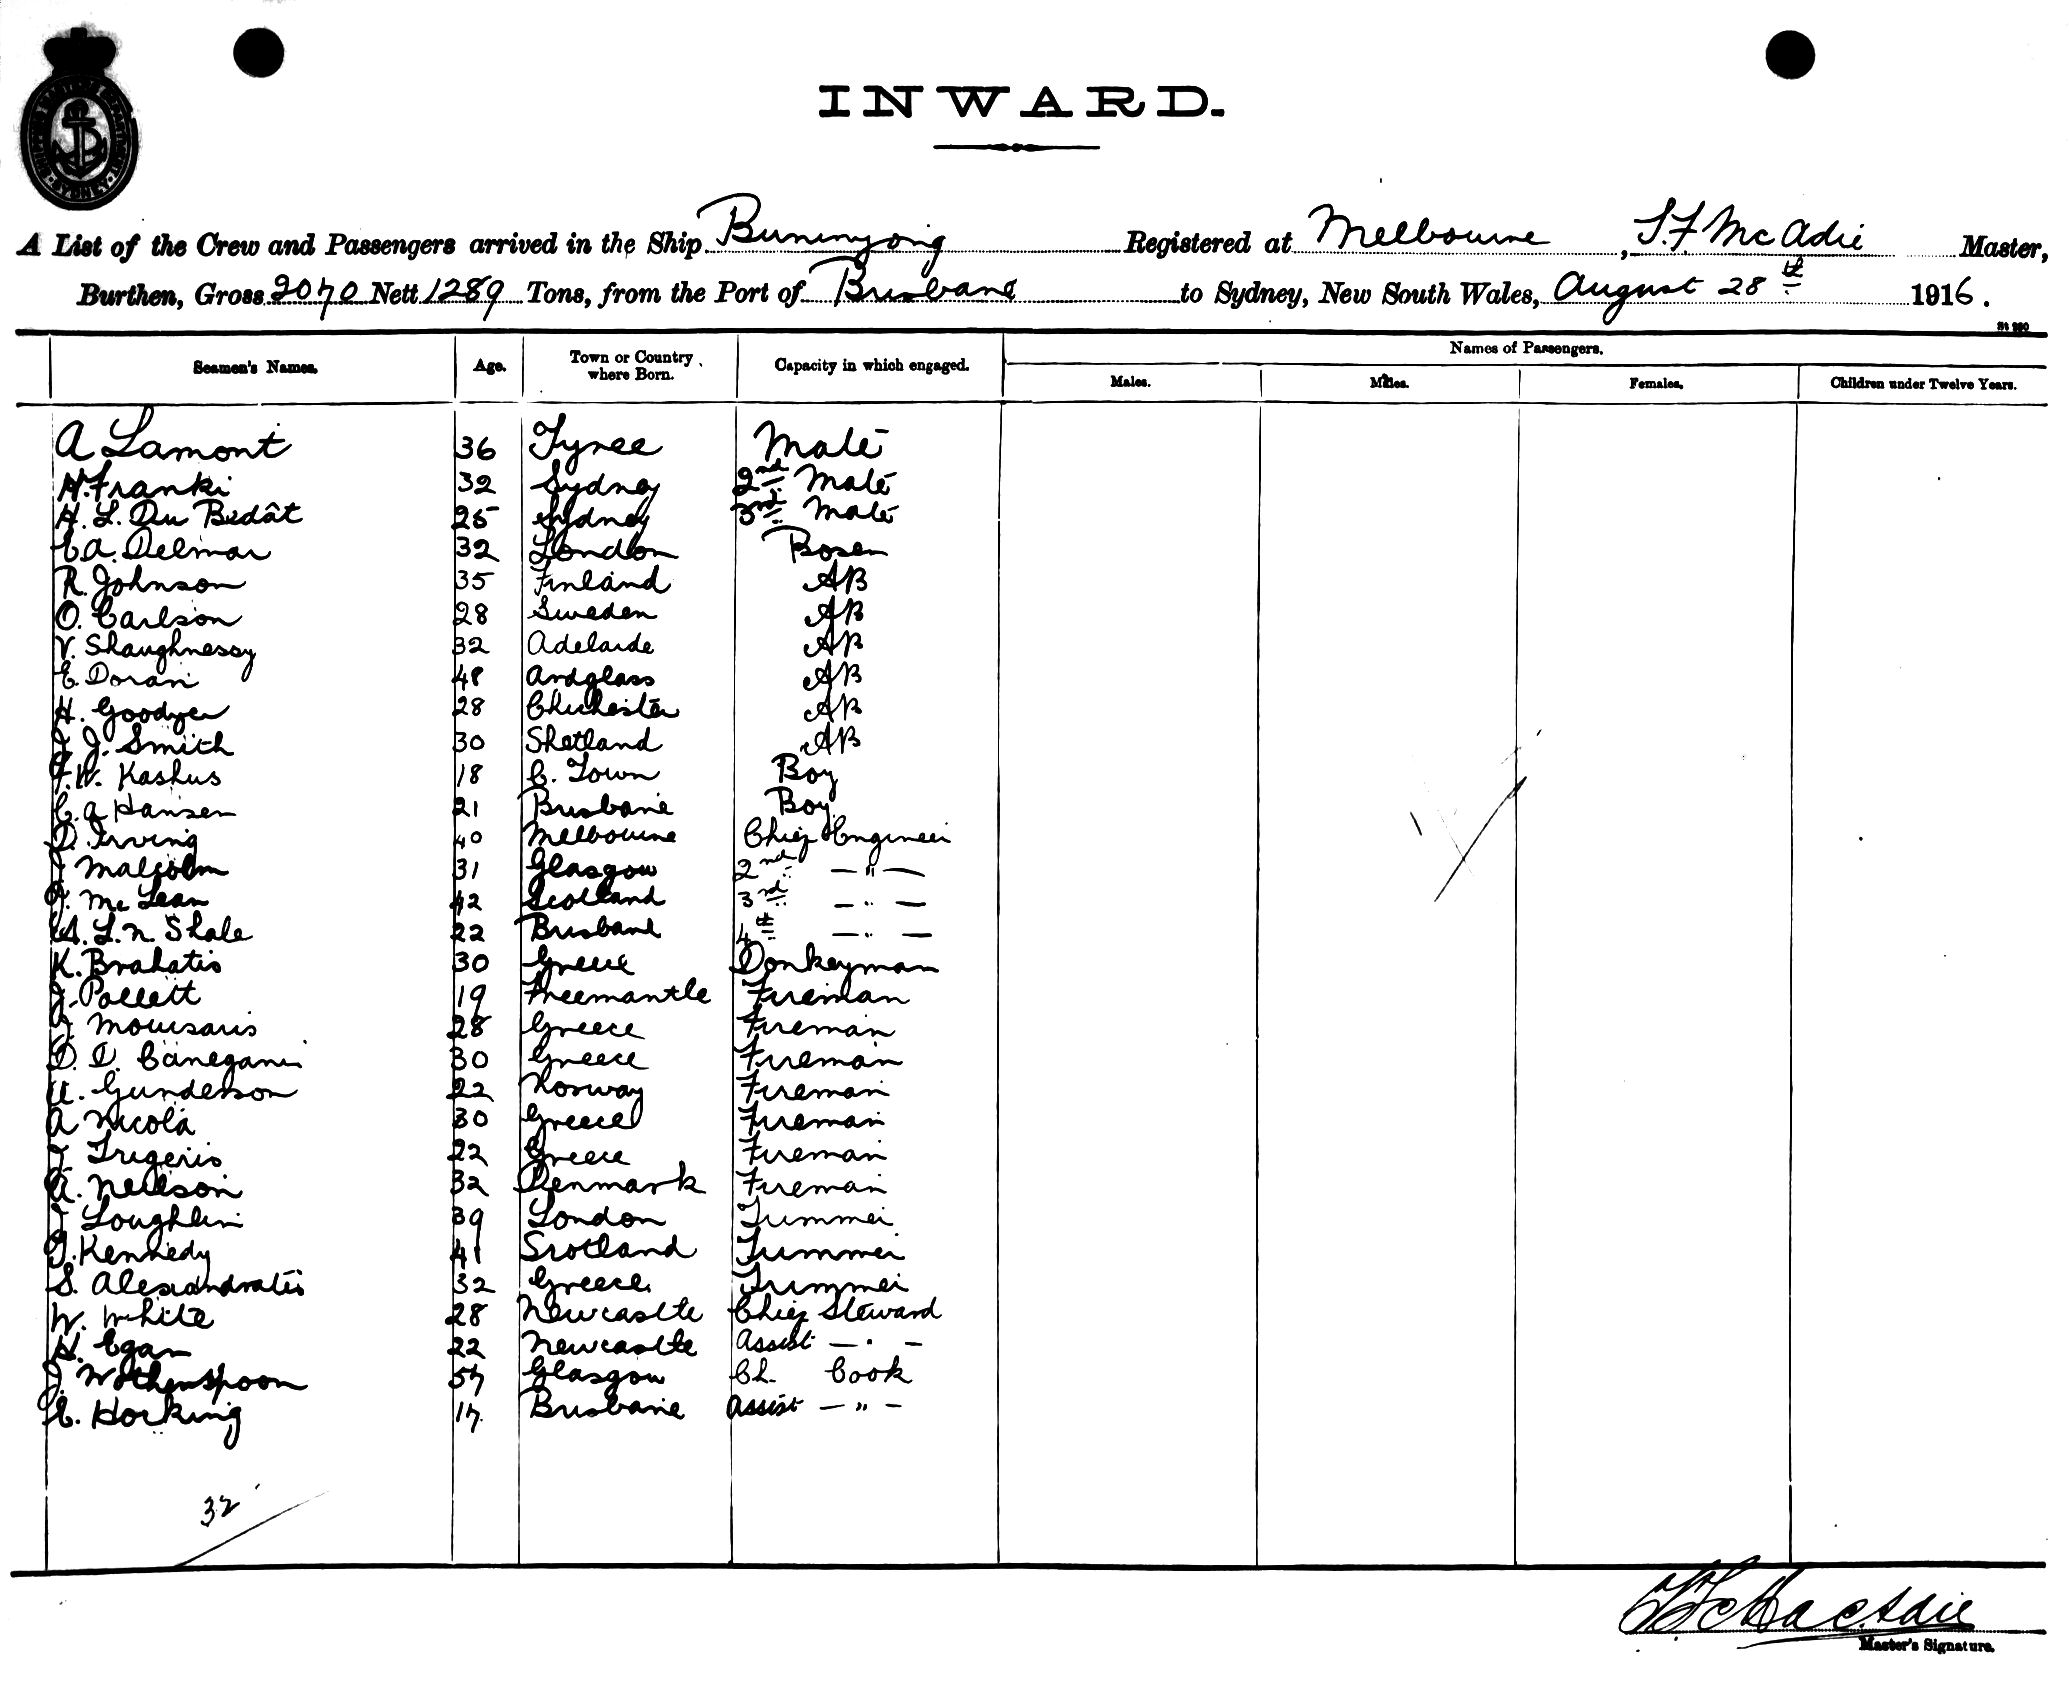 INWARD.
A List of the Crew and Passengers arrived in the Ship Buninyong Registered at Melbourne, S.F McAdie Master,
Burthen, Gross 2070 Nett 1289 Tons, from the Port of Brisbane to Sydney, New South Wales, August 28th 1916.
Seamen's Names. Age. Town or Country where Born. Capacity in which engaged. Names of Passengers.
Males. Males. Females. Children under Twelve Years.
A Lamont 36 Tyree Mate
H. Franki 32 Sydney 2nd Mate
H. L. Du Bedât 25 Sydney 3rd Mate
C. A. Delmar 32 London Bosen
R. Johnson 35 Finland AB
O. Carlson 28 Sweden AB
V. Shaughnessy 32 Adelaide AB
E. Doran 48 Ardglass AB
H. Goodyer 28 Chichester AB
J. J. Smith 30 Shetland AB
F. W. Kashus 18 C. Town Boy
C. A Hansen 21 Brisbane Boy
D. Irving 40 Melbourne Chief Engineer
J Malcolm 31 Glasgow 2nd — " —
J. McLean 42 Scotland 3rd — " —
L. N. Shale 22 Brisbane 4th — " —
K. Brahatis 30 Greece Donkeyman
J. Pollett 19 Freemantle Fireman
J Moursaris 28 Greece Fireman
D. D. Canegani 30 Greece Fireman
A. Gunderson 22 Norway Fireman
A Nicola 30 Greece Fireman
J. Trigeris 22 Greece Fireman
A. Neilson 32 Denmark Fireman
J Loughlin 39 London Trimmer
J. Kennedy 41 Scotland Trimmer
S. Alexandratis 32 Greece Trimmer
W. White 28 Newcastle Chief Steward
H. Egan 22 Newcastle Assist — " —
J. Wotherspoon 57 Glasgow Ch. Cook
C. Horking 17 Brisbane Assist — " —
32
Master's Signature.